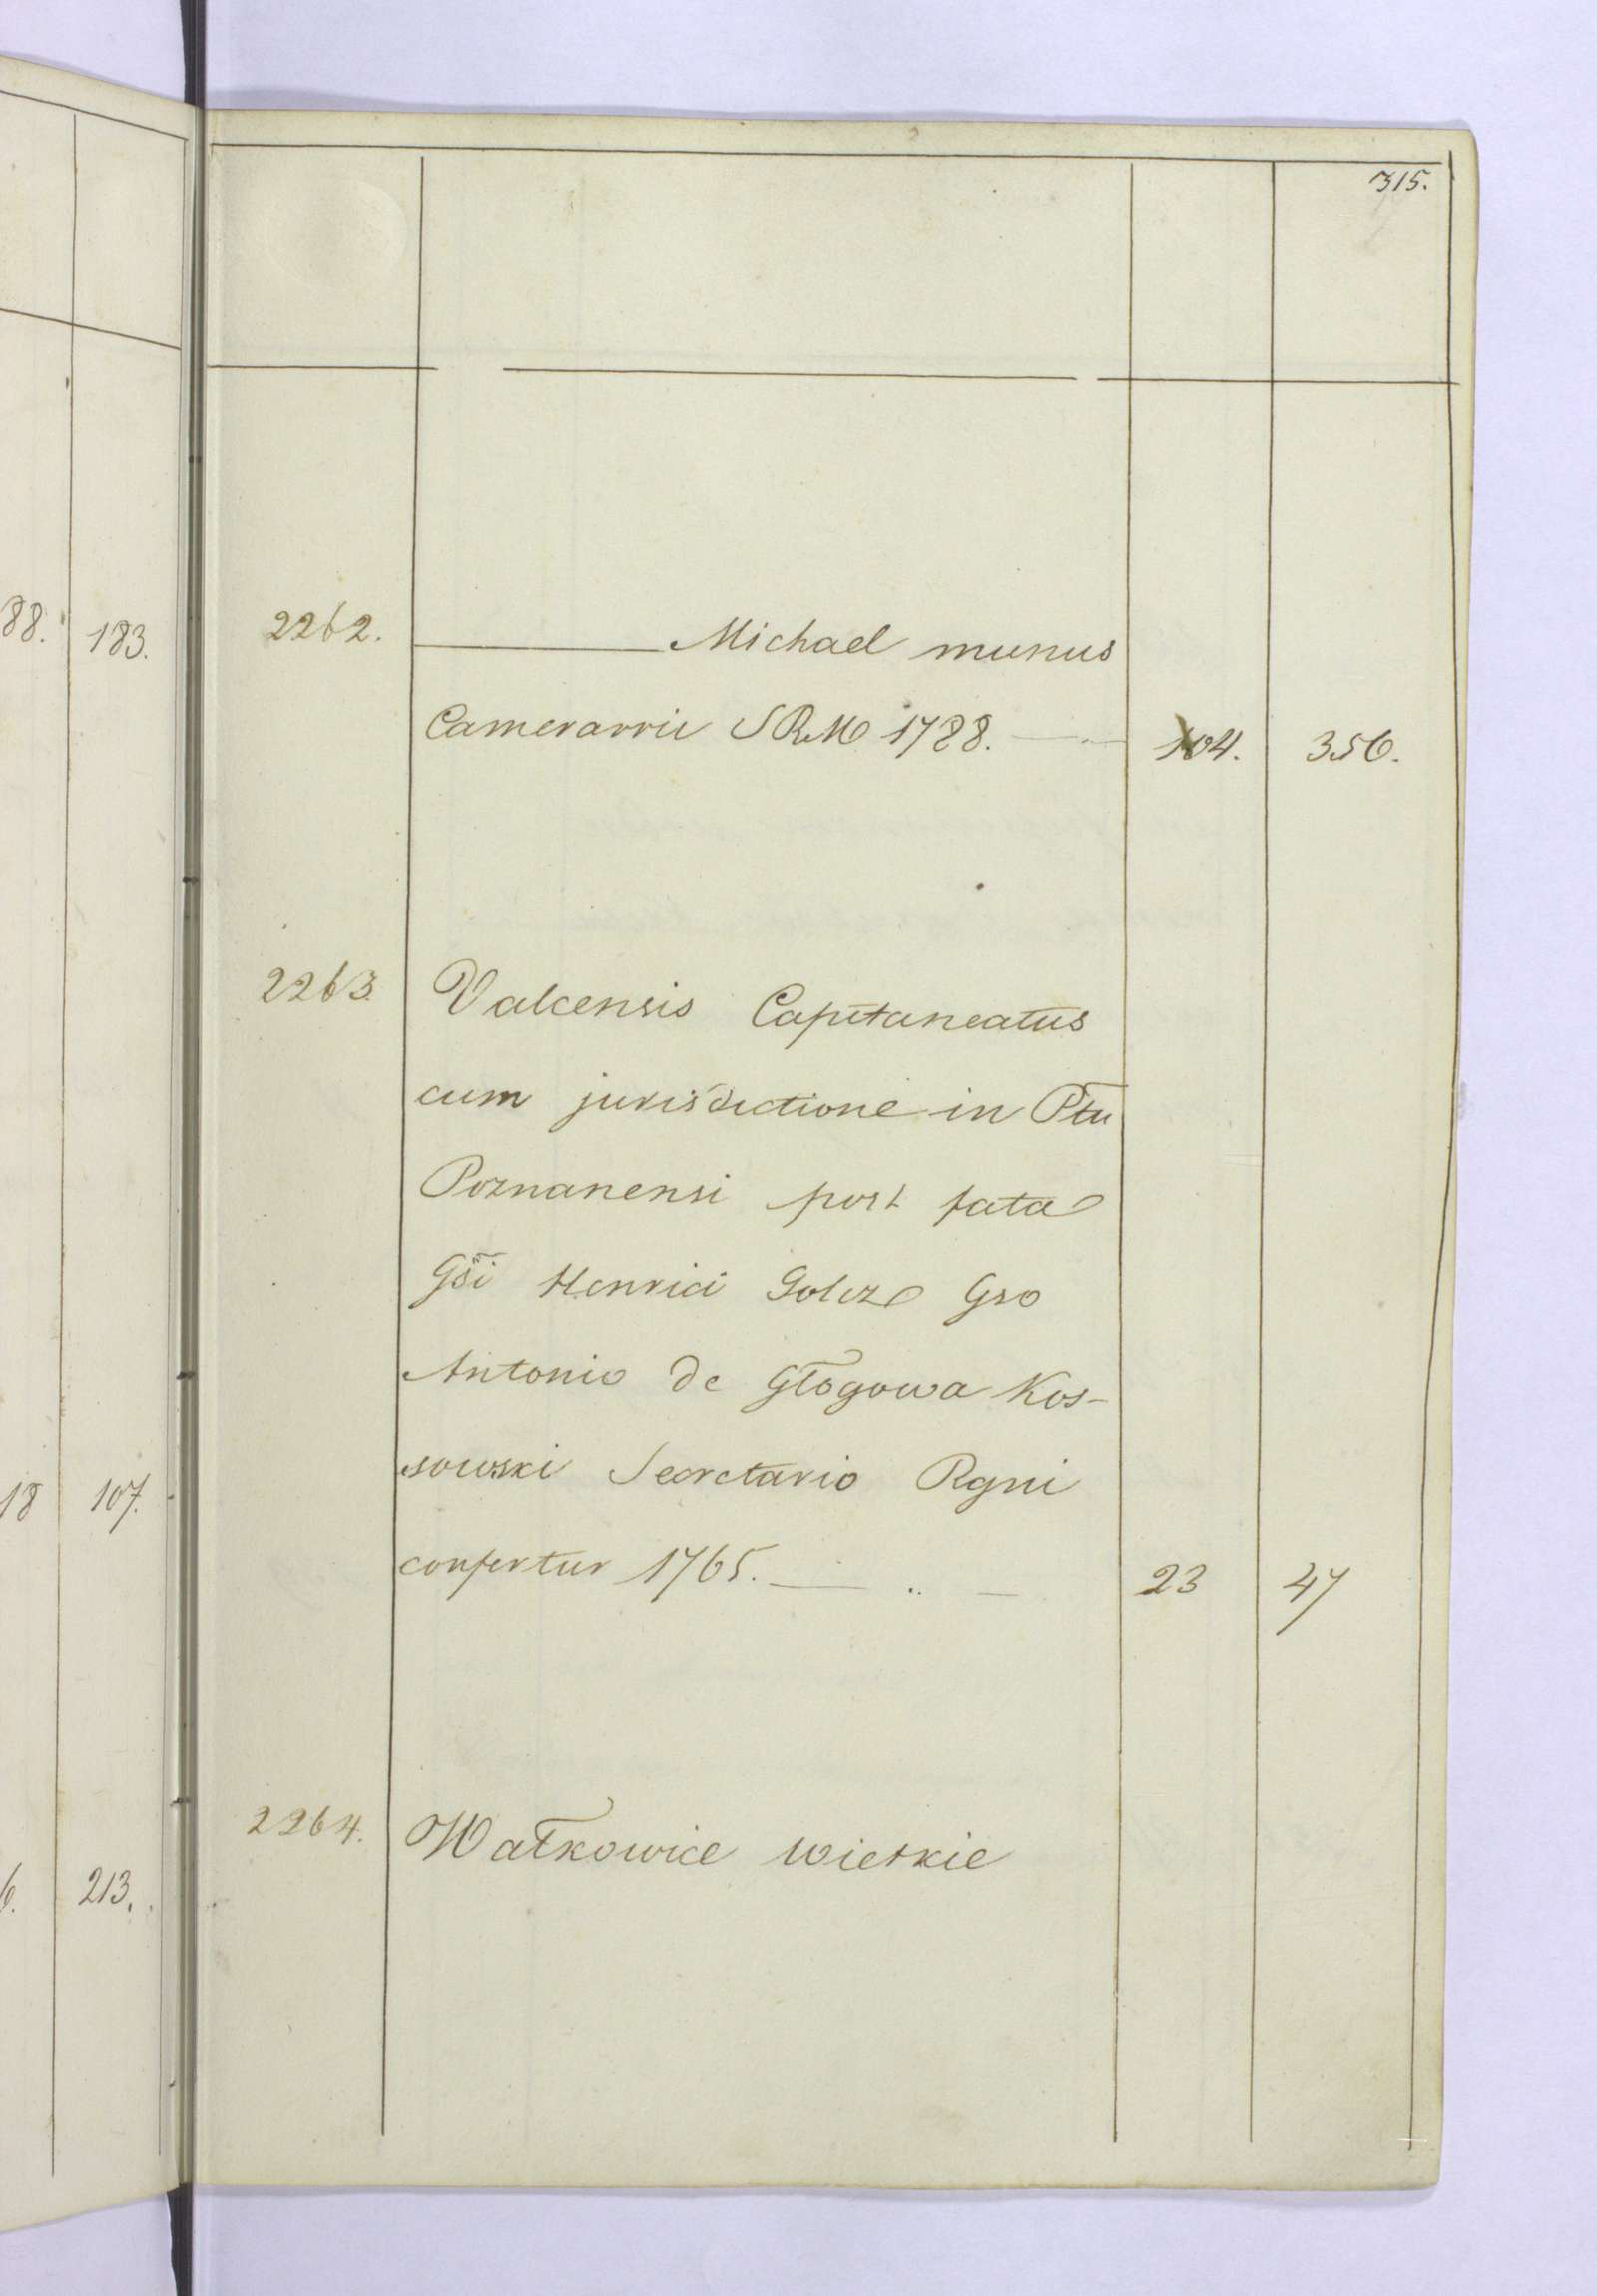 315.
88. 183.
2262. Michael munus
Camerarrii SRM 1788. 104. 356.
2263. Valcensis Capitaneatus
cum jurisdictione in Ptu
Poznanensi post fata
Gsi Henrici Golcz Gso
Antonio de Głogowa Kos-
sowski Secretario Rgni
confertur 1765. 23 47
18 107.
2264. Wałkowice wielkie
6. 213.